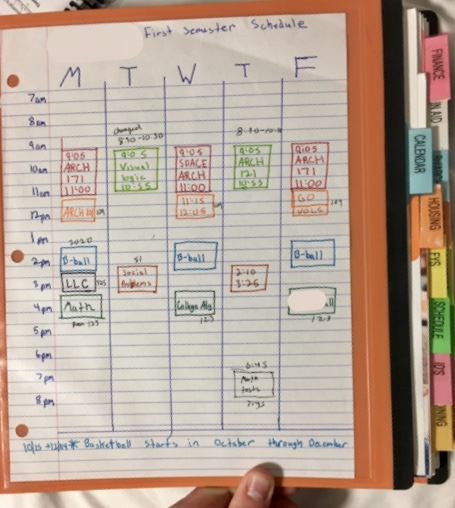 First Semester Schedule
M T W T F
7am
8am
changed
8:30-10:30
9am
10am
11am
12pm
1pm
2pm
3pm
4pm
5pm
6pm
7pm
8pm
9:05
ARCH
171
11:00
ARCH
2020
B-ball
LLC
Math
9:05
Visual
logic
10:55
51
Social
Problems
9:05
SPACE
ARCH
11:00
11:15
12:05
B-ball
College Alg
9:05
ARCH
121
10:55
2:10
3:25
6:45
Math
tests
9:05
ARCH
171
11:00
GO
VOLS
B-ball
* Basketball starts in October through December
FINANCE
CALENDAR
HOUSING
SCHEDULE
IDS